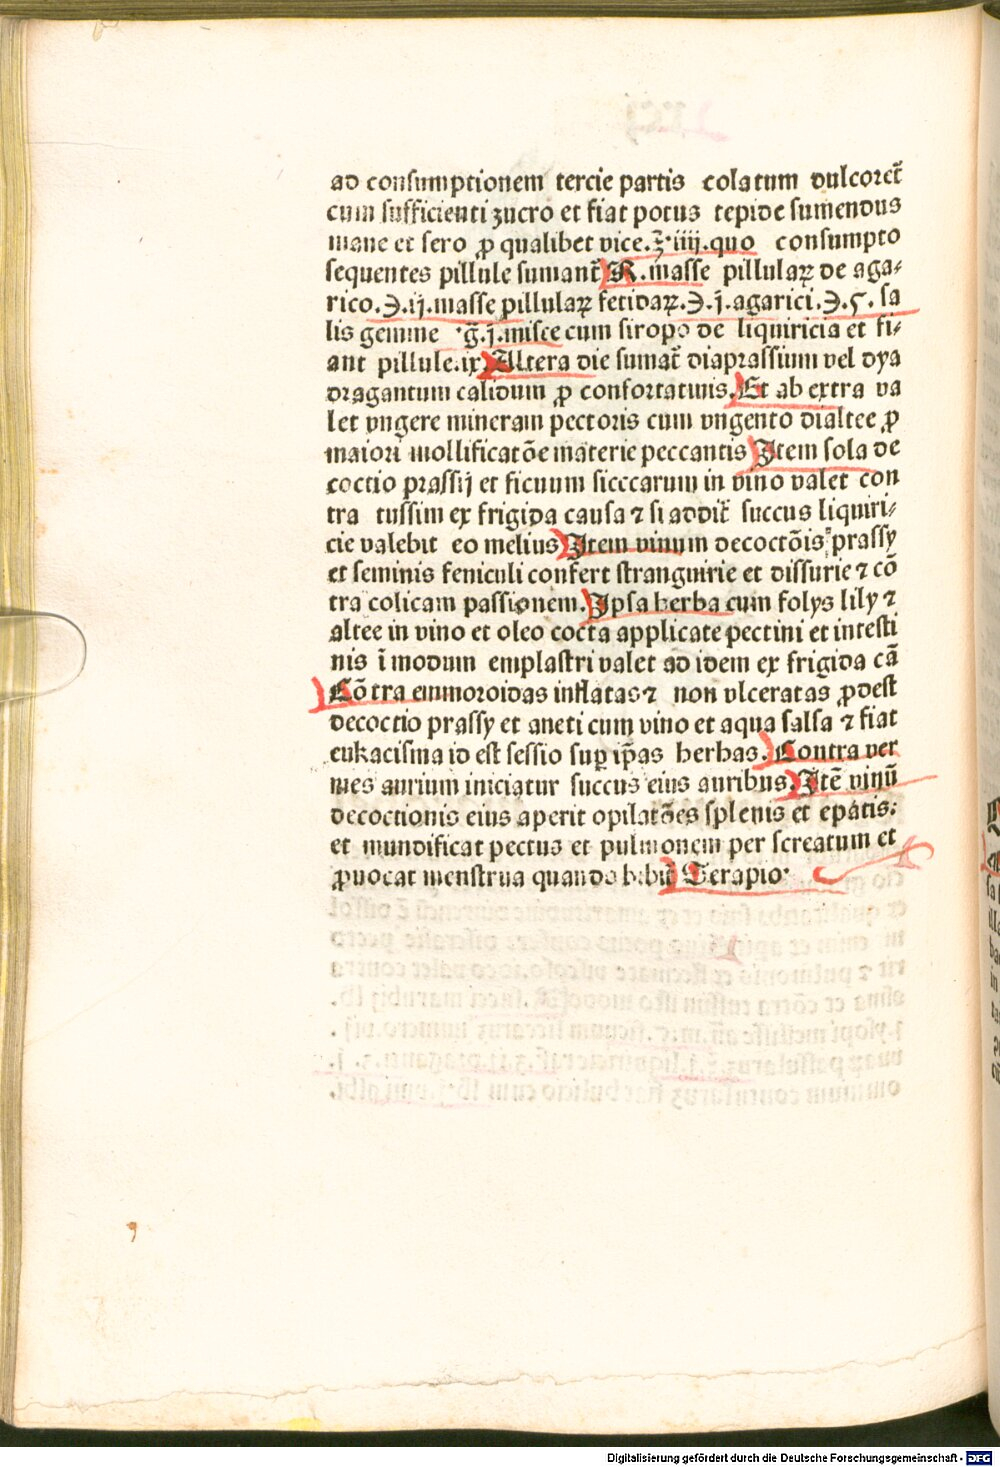 ad consumptionem tercie partis colatum dulcoret̄
cum sufficienti zucro et fiat potus tepide sumendus
mane et sero ꝓ qualibet vice.℥.iiij.quo consumpto
sequentes pillule sumant̄ R. masse pillulaꝝ de aga⸗
rico.℈.ij.masse pillulaꝝ fetidaꝝ.℈.j.agarici.℈.ς. sa
lis gemme .g̅.j.misce cum siropo de liquiricia et fi⸗
ant pillule.ix. Altera die sumat̄ diaprassium vel dya
dragantum calidum ꝓ confortatiuis. Et ab extra va
let vngere mineram pectoris cum vngento dialtee ꝓ
maiori mollificatōe materie peccantis Item sola de
coctio prassij et ficuum sicccarum in vino valet con
tra tussim ex frigida causa ⁊ si addit̄ succus liquiri⸗
cie valebit eo melius Item vinum decoctōis prassy
et seminis feniculi confert stranguirie et dissurie ⁊ cō
tra colicam passionem. Ipsa herba cum folys lily ⁊
altee in vino et oleo cocta applicate pectini et intesti
nis ī modum emplastri valet ad idem ex frigida cā
Cōtra emmoroidas inflatas⁊ non vlceratas ꝓdest
decoctio prassy et aneti cum vino et aqua salsa ⁊ fiat
eukacisma id est sessio suꝑ ip̄as herbas. Contra ver
mes aurium iniciatur succus eius auribus. Itē vinū
decoctionis eius aperit opilatōes splenis et epatis:
et mundificat pectus et pulmonem per screatum et
ꝓuocat menstrua quando bibit̄ Serapio:
Digitalisierung gefördert durch die Deutsche Forschungsgemeinschaft - DFG